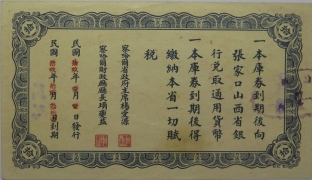 拾
拾
一本庫券到期後向
張家口山西省銀
行兌取通用貨幣
一本庫券到期後得
繳納本省一切賦
稅
察哈爾省政府主席楊愛源
察哈爾財政廳廳長
民國 年 月 日發行
民國 年 月 日到期
拾
拾